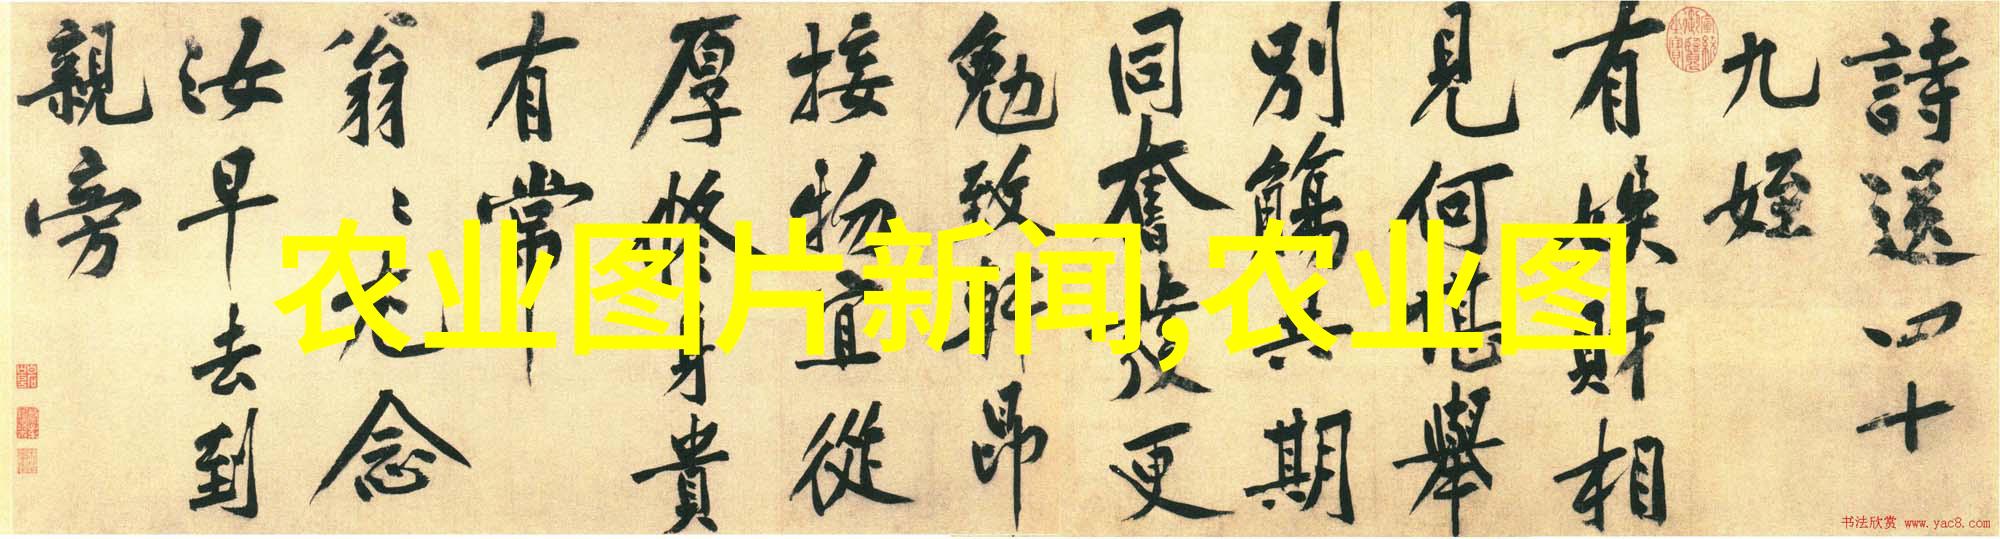 詩送四十
九姪
有財相
見何堪舉
別觴與期
同奮發更
勉致軒昂
接物宜從
厚修身貴
有常
翁〻老念
汝早去到
親旁
农业图片新闻,农业图
书法欣赏 www.yac8.com